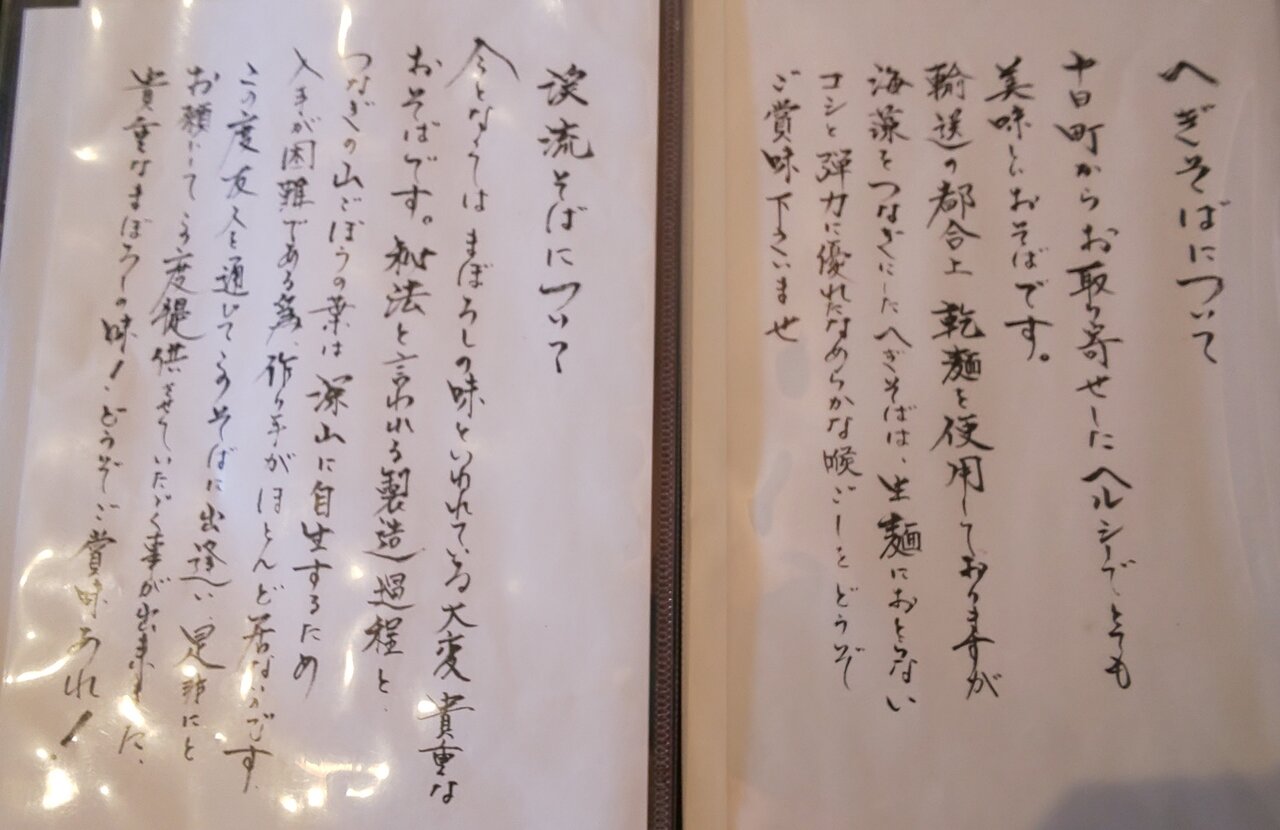 へぎそばについて
十日町からお取り寄せしたヘルシーでとても
美味しいおそばです。
輸送の都合上 乾麺を使用しておりますが
海藻をつなぎにしたへぎそばは、生麺におとらない
コシと弾力に優れたなめらかな喉ごしをどうぞ
ご賞味下さいませ
流そばについて
今となっては まぼろしの味といわれている大変貴重な
おそばです。秘法と言われる製造過程と、
つなぎの山ごぼうの葉は 深山に自生するため
入手が困難である為、作り手がほとんど居ないそです
この度友人を通じてこのそばに出逢い、是非にと
お願いして この度提供させていただく事が出来ました、
貴重なまぼろしの味!どうぞご賞味あれ!